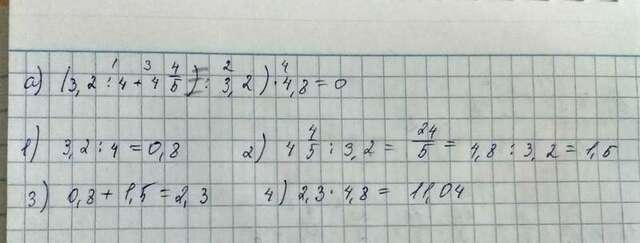 1 3 2 4
а) (3,2 : 4 + 4 4/5 : 3,2) · 4,8 = 0
1) 3,2 : 4 = 0,8 2) 4 4/5 : 3,2 = 24/5 = 4,8 : 3,2 = 1,5
3) 0,8 + 1,5 = 2,3 4) 2,3 · 4,8 = 11,04